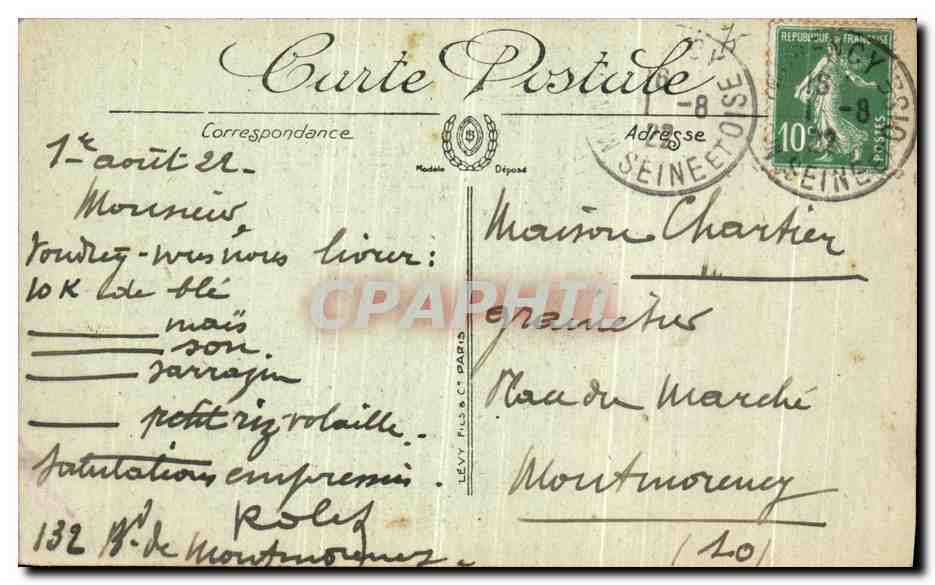 Carte Postale
Correspondance
Adresse
Modèle Déposé
RÉPUBLIQUE FRANÇAISE
10c
POSTES
SEINE ET OISE
1-8
22
SEINE ET OISE
16
1-8
22
1er août 22-
Monsieur
Voudrez-vous nous livrer :
10 K de blé
maïs
son.
sarrazin
petit riz volaille.
Salutations empressées.
132 Bd. de Montmorency
LÉVY FILS & Cie PARIS
Maison Chartier
grainetier
Place du Marché
Montmorency
CPAPHIL